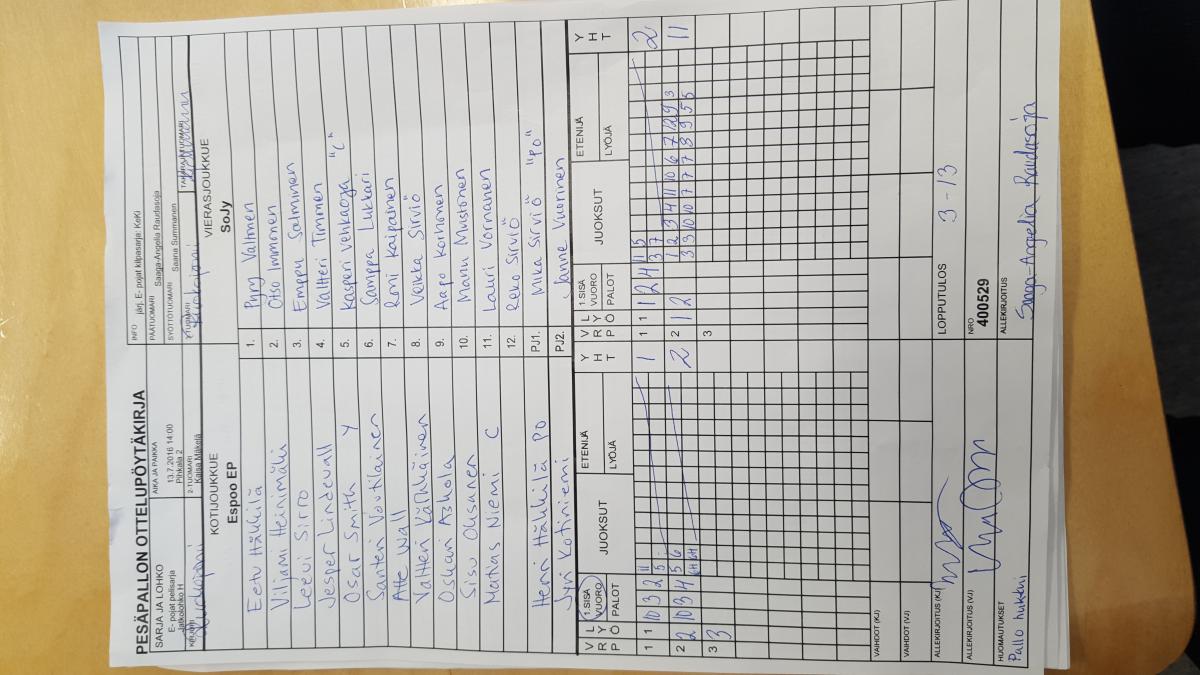 PESÄPALLON OTTELUPÖYTÄKIRJA
SARJA JA LOHKO
E- pojat pelisarja
Jatkolohko H
AIKA JA PAIKKA
13.7.2016 14:00
Pihkala 2
INFO järj. E- pojat kilpasarja: KeKi
PÄÄTUOMARI Saaga-Angelia Raudasoja
SYÖTTÖTUOMARI Saana Summanen
KIRJURI
2-TUOMARI
Kaisa Mäkelä
KOTIJOUKKUE
Espoo EP
VIERASJOUKKUE
SoJy
Eetu Häkkilä
1. Pyry Valtanen
Viljami Heinimäki
2. Otso Immonen
Leevi Sirro
3. Emppu Salminen
Jesper Lindevall
4. Valtteri Timmen
Osar Smith Y
5. Kasperi Vehkaoja "C"
Santeri Voutilainen
6. Samppa Lukkari
Atte Wall
7. Roni Kaipainen
Valtteri Kärkkäinen
8. Veikka Sirviö
Oskari Azhola
9. Aapo Korhonen
Sisu Oksanen
10. Manu Mustonen
Matias Niemi C
11. Lauri Vornanen
12. Reko Sirviö
Henri Häkkilä PO
PJ1. Mika Sirviö "PO"
Jyri Kotiniemi
PJ2. Janne Vuorinen
V L
R Y
P Ö
1.SISÄ
VUORO
PALOT
JUOKSUT
ETENIJÄ
LYÖJÄ
Y
H
T
V L
R Y
P Ö
1.SISÄ
VUORO
PALOT
JUOKSUT
ETENIJÄ
LYÖJÄ
Y
H
T
1 1 10 3 2 11 5 1
1 1 1 2 4 11 5 3 7 2
2 2 10 3 4 5 6 2
2 1 2 1 2 3 4 11 10 6 7 12 9 3 11
3 3 10 10 7 7 7 8 9 5 5
3 3
3
VAIHDOT (KJ)
VAIHDOT (VJ)
ALLEKIRJOITUS (KJ)
LOPPUTULOS 3 - 13
ALLEKIRJOITUS (VJ)
NRO
400529
HUOMAUTUKSET
Pallo hukkui
ALLEKIRJOITUS
Saaga-Angelia Raudasoja